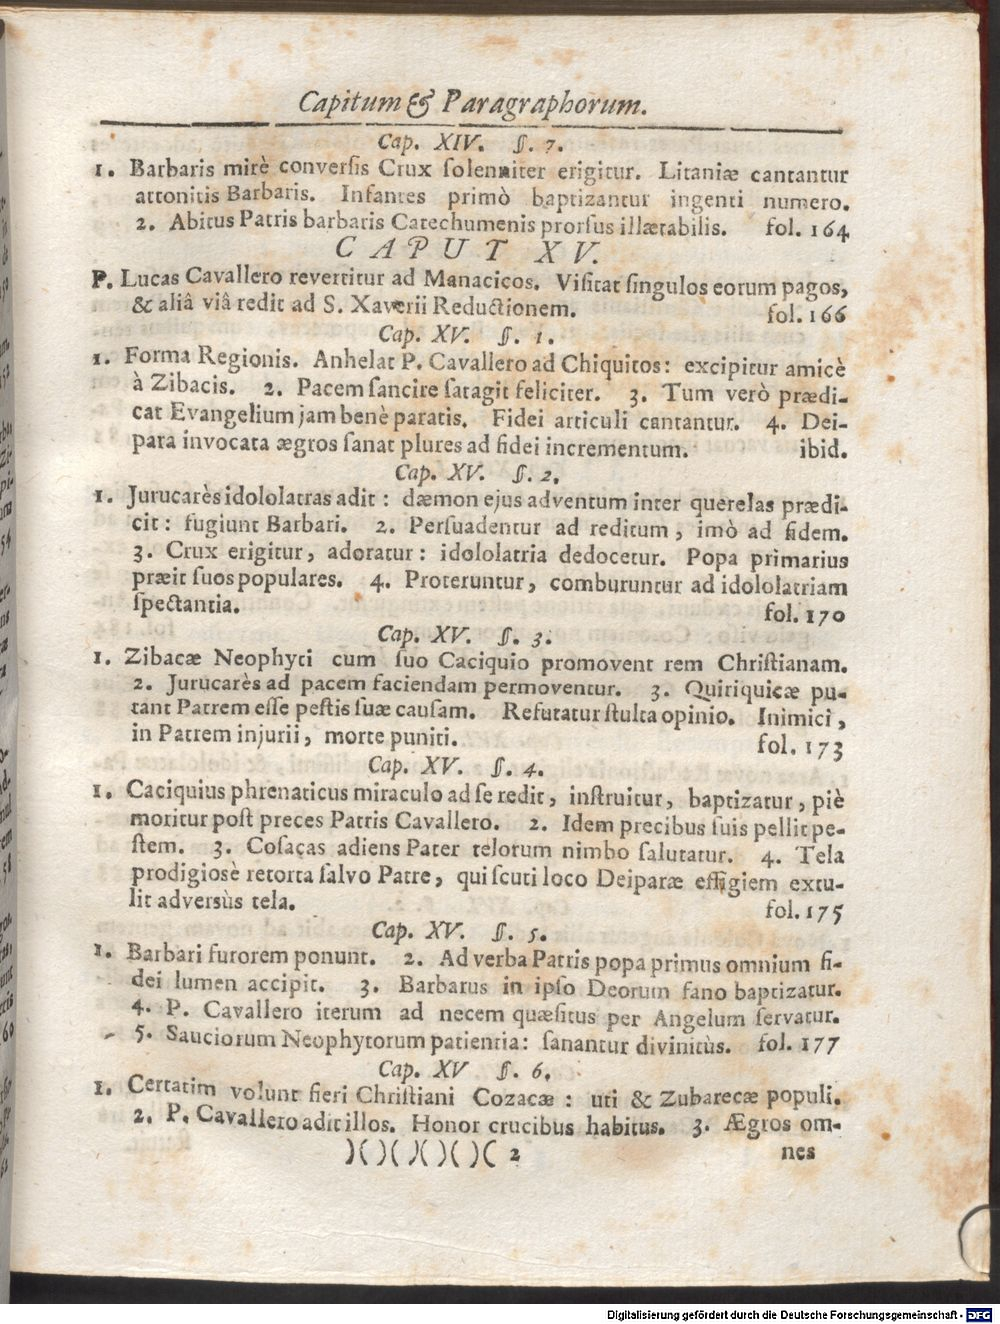 Capitum & Paragraphorum.
Cap. XIV. §. 7.
1. Barbaris mirè conversis Crux solenniter erigitur. Litaniæ cantantur
attonitis Barbaris. Infantes primò baptizantur ingenti numero.
2. Abitus Patris barbaris Catechumenis prorsus illætabilis. fol. 164
CAPUT XV.
P. Lucas Cavallero revertitur ad Manacicos. Visitat singulos eorum pagos,
& aliâ viâ redit ad S. Xaverii Reductionem. fol. 166
Cap. XV. §. 1.
1. Forma Regionis. Anhelat P. Cavallero ad Chiquitos: excipitur amicè
à Zibacis. 2. Pacem sancire satagit feliciter. 3. Tum verò prædi-
cat Evangelium jam benè paratis. Fidei articuli cantantur. 4. Dei-
para invocata ægros sanat plures ad fidei incrementum. ibid.
Cap. XV. §. 2.
1. Jurucarès idololatras adit: dæmon ejus adventum inter querelas prædi-
cit: fugiunt Barbari. 2. Persuadentur ad reditum, imò ad fidem.
3. Crux erigitur, adoratur: idololatria dedocetur. Popa primarius
præit suos populares. 4. Proteruntur, comburuntur ad idololatriam
spectantia. fol. 170
Cap. XV. §. 3.
1. Zibacæ Neophyti cum suo Caciquio promovent rem Christianam.
2. Jurucarès ad pacem faciendam permoventur. 3. Quiriquicæ pu-
tant Patrem esse pestis suæ causam. Refutatur stulta opinio. Inimici,
in Patrem injurii, morte puniti. fol. 173
Cap. XV. §. 4.
1. Caciquius phrenaticus miraculo ad se redit, instruitur, baptizatur, piè
moritur post preces Patris Cavallero. 2. Idem precibus suis pellit pe-
stem. 3. Cosacas adiens Pater telorum nimbo salutatur. 4. Tela
prodigiosè retorta salvo Patre, qui scuti loco Deiparæ effigiem extu-
lit adversùs tela. fol. 175
Cap. XV. §. 5.
1. Barbari furorem ponunt. 2. Ad verba Patris popa primus omnium fi-
dei lumen accipit. 3. Barbarus in ipso Deorum fano baptizatur.
4. P. Cavallero iterum ad necem quæsitus per Angelum servatur.
5. Sauciorum Neophytorum patientia: sanantur divinitùs. fol. 177
Cap. XV §. 6.
1. Certatim volunt fieri Christiani Cozacæ: uti & Zubarecæ populi.
2. P. Cavallero adit illos. Honor crucibus habitus. 3. Ægros om-
)()()()()( 2 nes
Digitalisierung gefördert durch die Deutsche Forschungsgemeinschaft - DFG